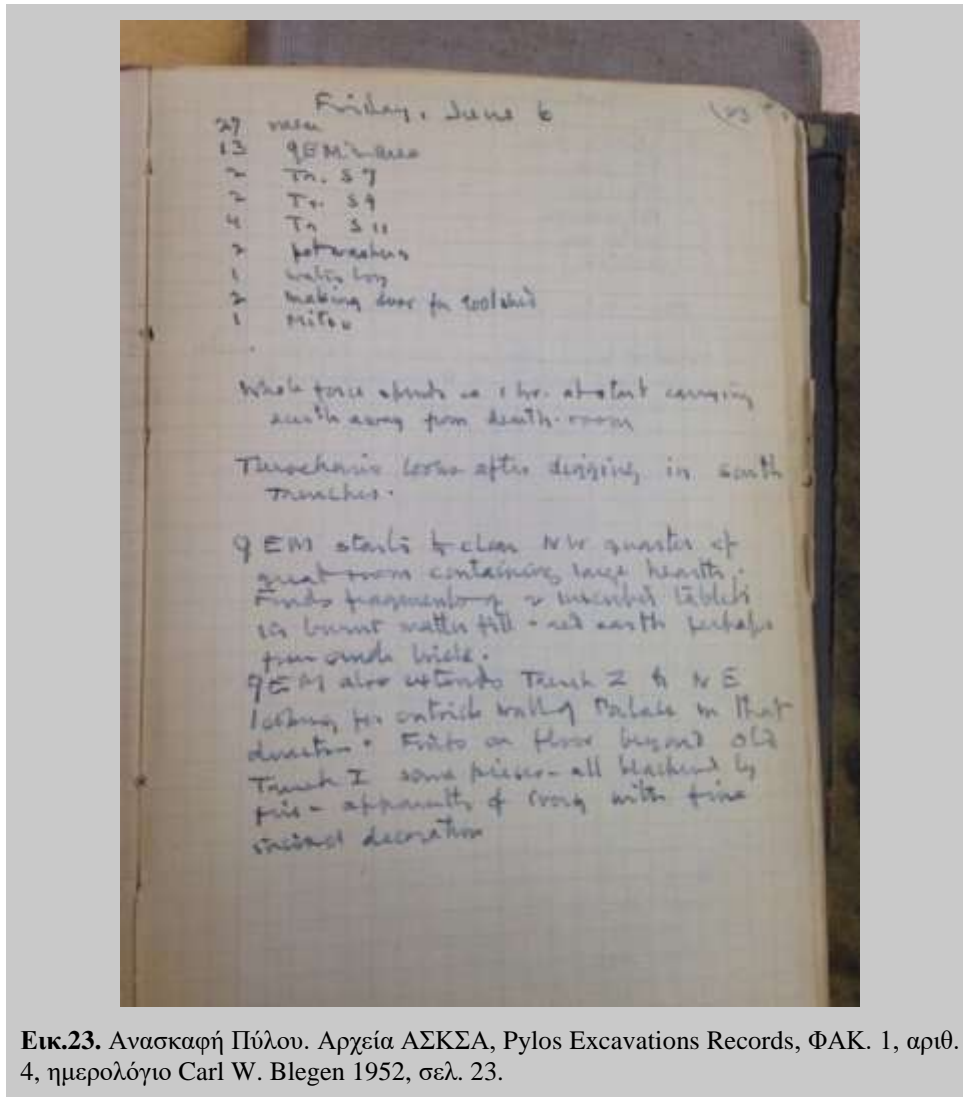 Friday, June 6
27 men
13 GEM's area
2 Tr. S 7
2 Tr. S 9
4 Tr S 11
2 potwashers
1 water boy
2 making door for toolshed
1 Mitso
Whole force spends ca 1 hr. at start carrying
earth away from dearth-room
looks after digging in south
Trenches.
GEM starts to clean NW quarter of
great room containing large hearth.
Finds fragments of 2 inscribed tablets
in burnt matter fill - red earth perhaps
from crude brick.
GEM also extends Trench I to NE
looking for outside wall of Palace in that
direction. Finds on floor beyond old
Trench I some pieces - all blackened by
fire - apparently of ivory with fine
incised decoration
Εικ.23. Ανασκαφή Πύλου. Αρχεία ΑΣΚΣΑ, Pylos Excavations Records, ΦΑΚ. 1, αριθ.
4, ημερολόγιο Carl W. Blegen 1952, σελ. 23.